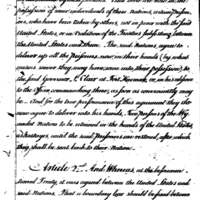 prisoners of
who have been taken by them, not in peace with the said
United States, or in violation of the Treaties subsisting between
the United States and them. The said Nations, agree to
deliver up all the Prisoners, now in their hands (by what
means soever they may have come into their possession) to
the said Governor, St. Clair, at Fort Harmar, or in his absence
to the officer commanding there, as soon as conveniently may
be. And for the true performance of this agreement they do
now agree to deliver into his hands, Two Persons of the Wy
andot Nation to be retained in the hands of the United States
as hostages, until the said Prisoners are restored, after which
they shall be sent back to their Nation.
Article 2nd And Whereas, at the before men
tioned Treaty, it was agreed between the United States and
said Nations, That a boundary line should be fixed between